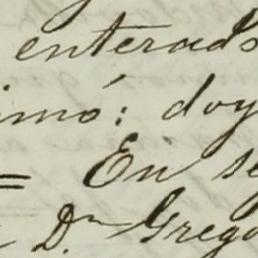 enterado
imó: doy
= En se
Dn Grego